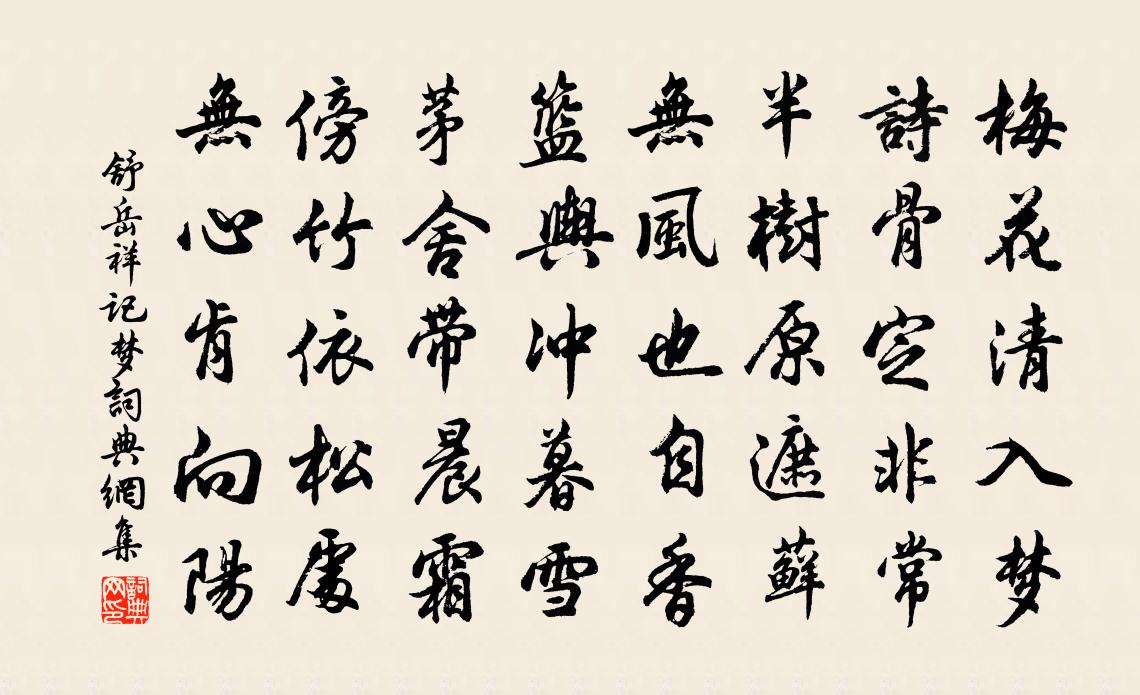 梅花清入梦
詩骨定非常
半樹原遮蘚
無風也自香
籃輿冲暮雪
茅舍帶晨霜
傍竹依松處
無心肯向陽
舒岳祥记梦詞典網集
詞典网印